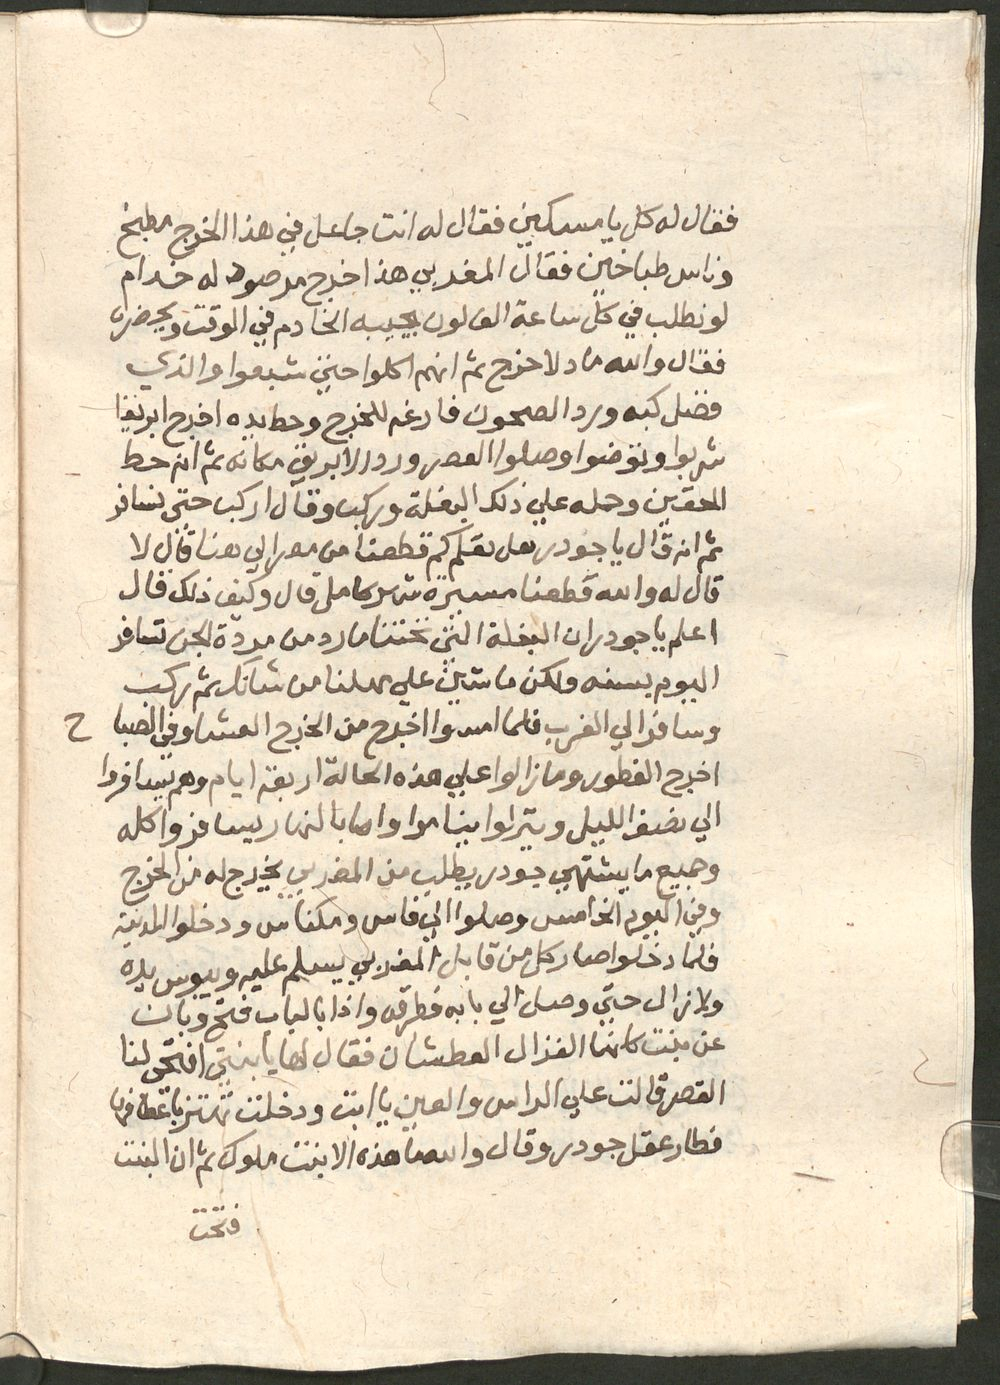 فقال له كل يا مسكين فقال له انت جاعل في هذا الخرج مطبخ
وناس طباخين فقال المغربي هذا خرج مرصود له خدام
لو نطلب في كل ساعة الف لون يجيبه الخادم في الوقت ويحضره
فقال والله ما د لا خرج ثم انهم اكلوا حتي شبعوا والذي
فضل كبه ورد الصحون فارغه للخرج وحط يده اخرج ابريقا
شربوا وتوضوا وصلوا العصر ورد الابريق مكانه ثم انه حط
الحقين وحمله علي ذلك البغلة وركب وقال اركب حتى نسافر
ثم انه قال يا جودر هل تعلم كم قطعنا من مصر الي هنا قال لا
قال له والله قطعنا مسيرة شهر كامل قال وكيف ذلك قال
اعلم يا جودر ان البغلة التي تحتنا مارد من مردة الجن تسافر
اليوم بسنه ولكن ماشين علي مهلنا من شانك ثم ركب
وسافر الي الغرب فلما امسوا اخرج من الخرج العشا وفي الصبا ح
اخرج الفطور وما زالوا علي هذه الحالة اربعة ايام وهم يسافروا
الي نصف الليل وينزلوا يناموا واما بالنهار يسافر واكله
وجميع ما يشتهي جودر يطلب من المغربي يخرج له من الخرج
وفي اليوم الخامس وصلوا الي فاس ومكناس ودخلوا المدينة
فلما دخلوا صار كل من قابل المغربي يسلم عليه ويبوس يده
ولا زال حتي وصل الي بابه فطرقه واذا بالباب فتح وبان
عن بنت كانها الغزال العطشان فقال لها يا بنتي افتحي لنا
القصر قالت علي الراس والعين يا ابت ودخلت تهتز باعطافها
فطار عقل جودر وقال والله ما هذه الا بنت ملوك ثم ان البنت
فتحت